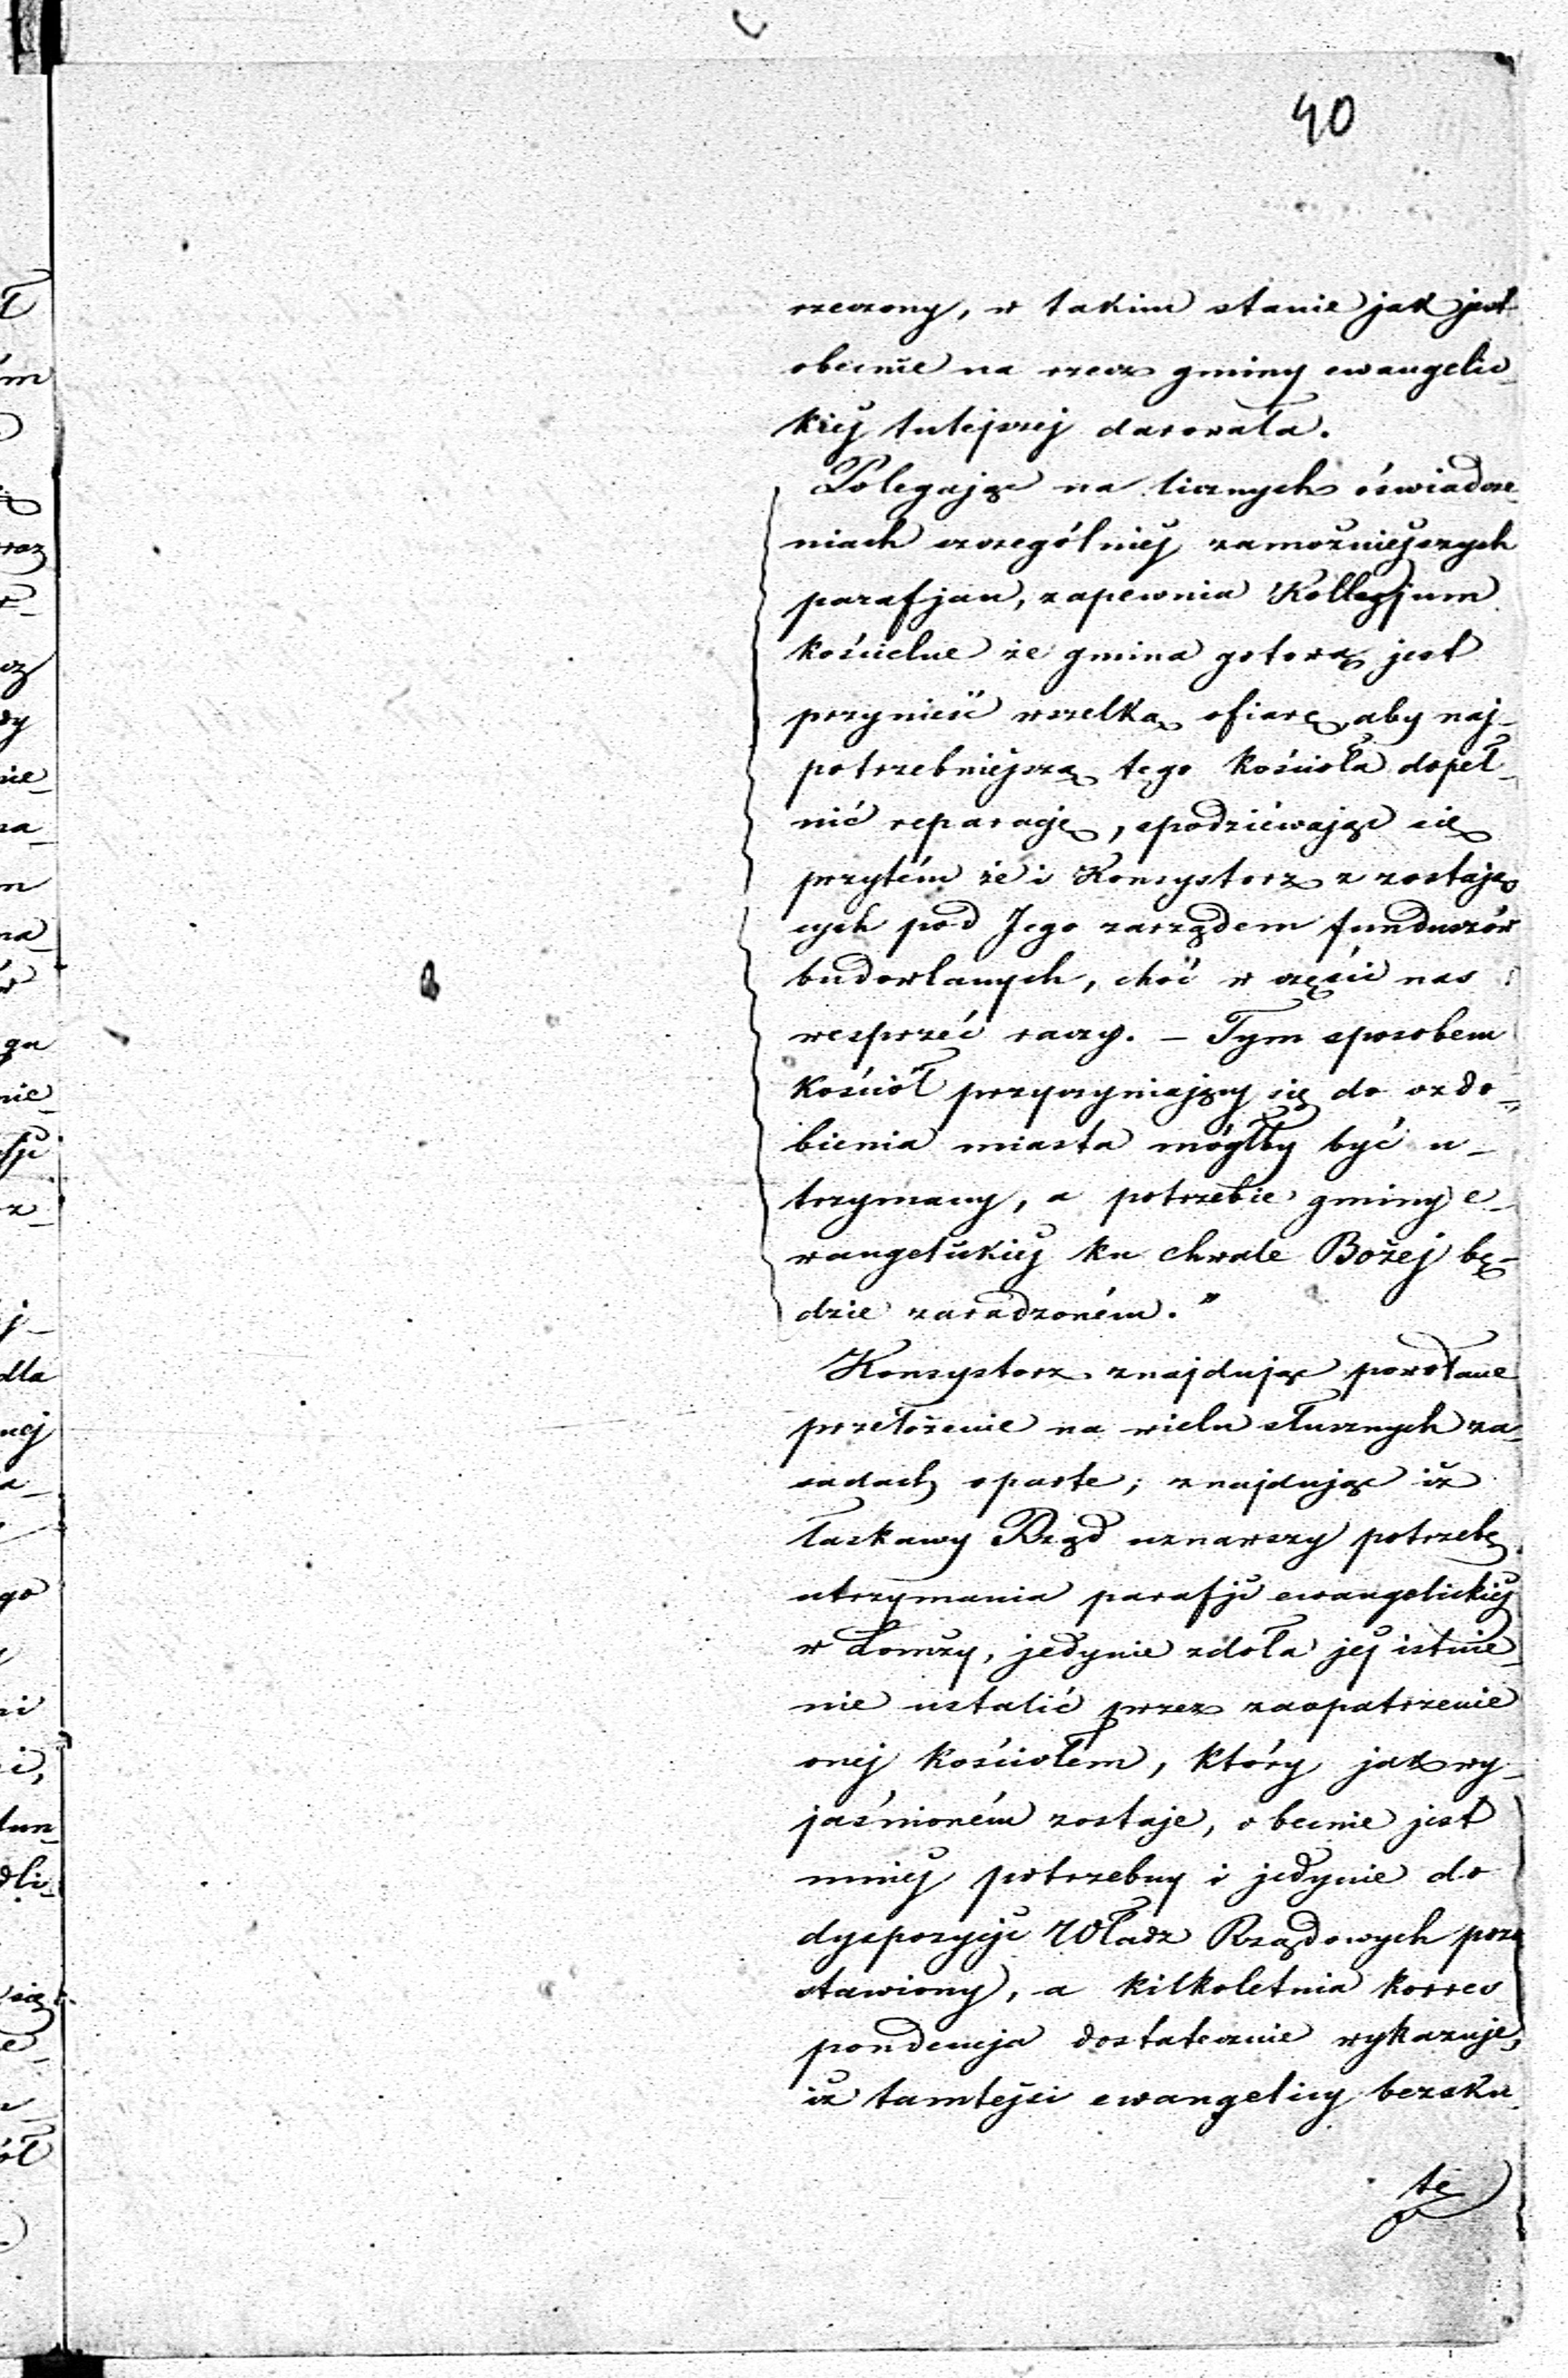 40
rzeczony, w takim stanie jak jest
obecnie na rzecz gminy ewangelic_
kiéj tutejszej darowała.
Polegając na licznych oświadcze_
niach szczególniéj zamożniejszych
parafjan, zapewnia Kollegjum
kościelne że gmina gotową jest
przynieść wszelką ofiarę, aby naj_
potrzebniejszą tego kościoła dopeł_
nić reparację, spodziéwając się
przytém że i Konsystorz z zostają
cych pod Jego zarządem funduszów
budowlanych, choć w części nas
wesprzéć raczy. – Tym sposobem
kościół przyczyniający się do ozdo_
bienia miasta mógłby być u_
trzymany, a potrzebie gminy e_
wangelickiéj ku chwale Bożej bę_
dzie zaradzoném."
Konsystorz znajdując powołane
przełożenie na wielu słusznych za_
sadach oparte; znajdując iż
łaskawy Rząd uznawszy potrzebę
utrzymania parafji ewangelickiéj
w Łomży, jedynie zdoła jej istnie_
nie ustalić przez zaopatrzenie
onej kościołem, który jak wy_
jaśnioném zostaje, obecnie jest
mniéj potrzebny i jedynie do
dyspozycji Władz Rządowych pozo
stawiony, a kilkoletnia korres
pondencja dostatecznie wykazuje,
iż tamtejsi ewangelicy bezsku_
te